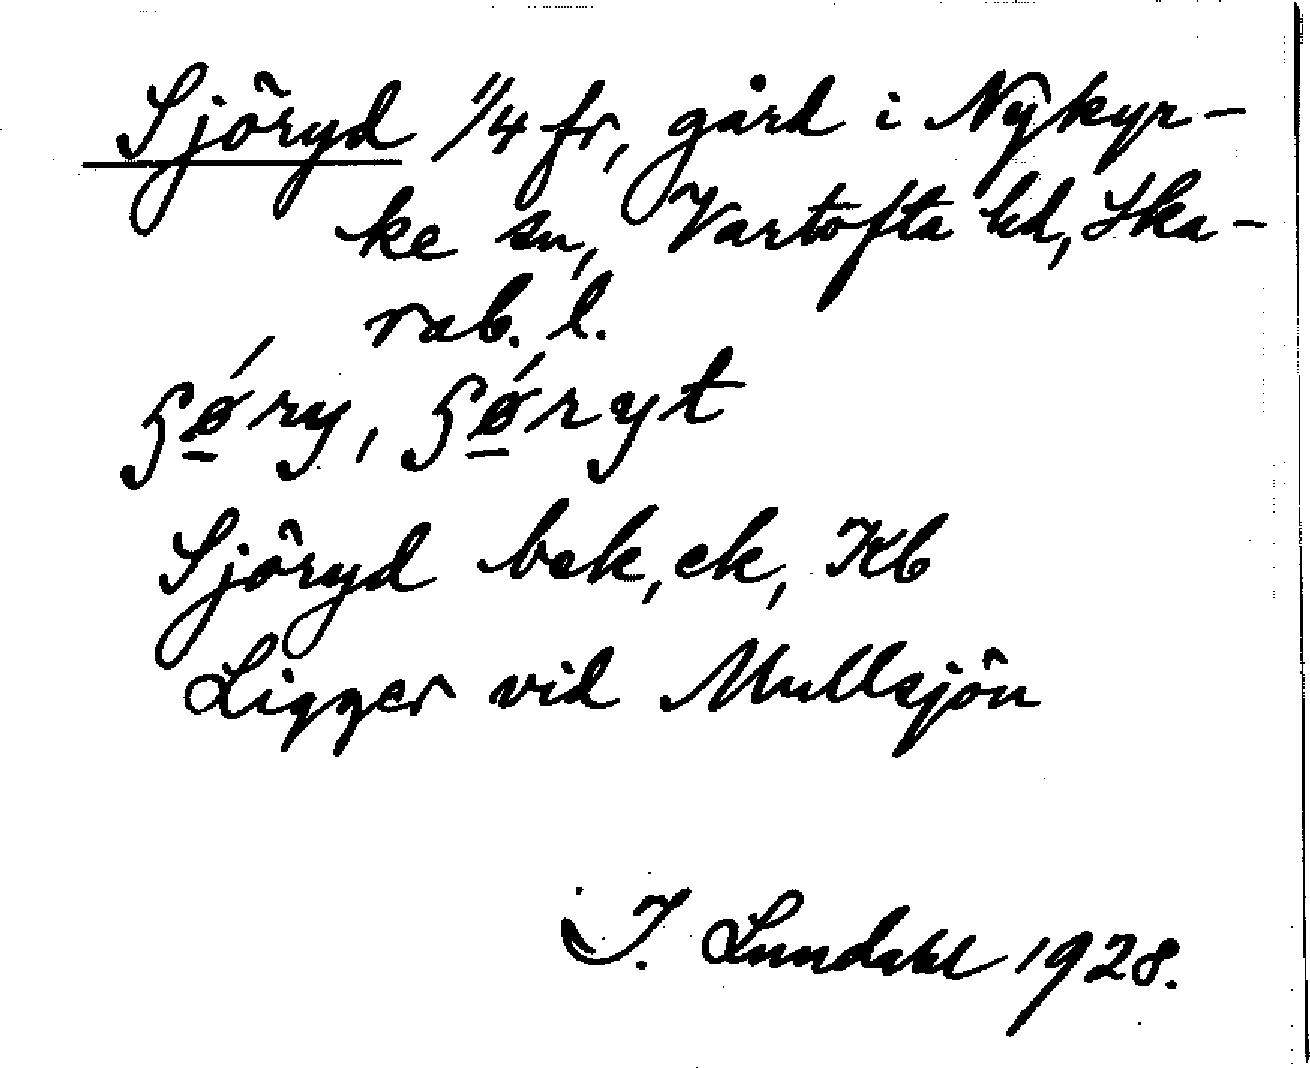 Sjöryd 1/4 fr, gård i Nykyr-
ke sn, Vartofta hd, Ska-
rab. l.
ʃǿ̲ry, ʃǿ̲ryt
Sjöryd bek, ek, Kb
Ligger vid Mullsjön
I. Lundahl 1928.